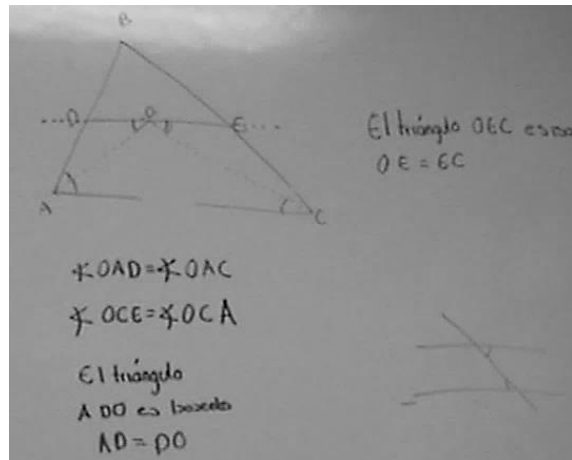 B
D O E
A C
El triángulo OEC es
OE = EC
∢OAD = ∢OAC
∢OCE = ∢OCA
El triángulo
ADO es
AD = DO